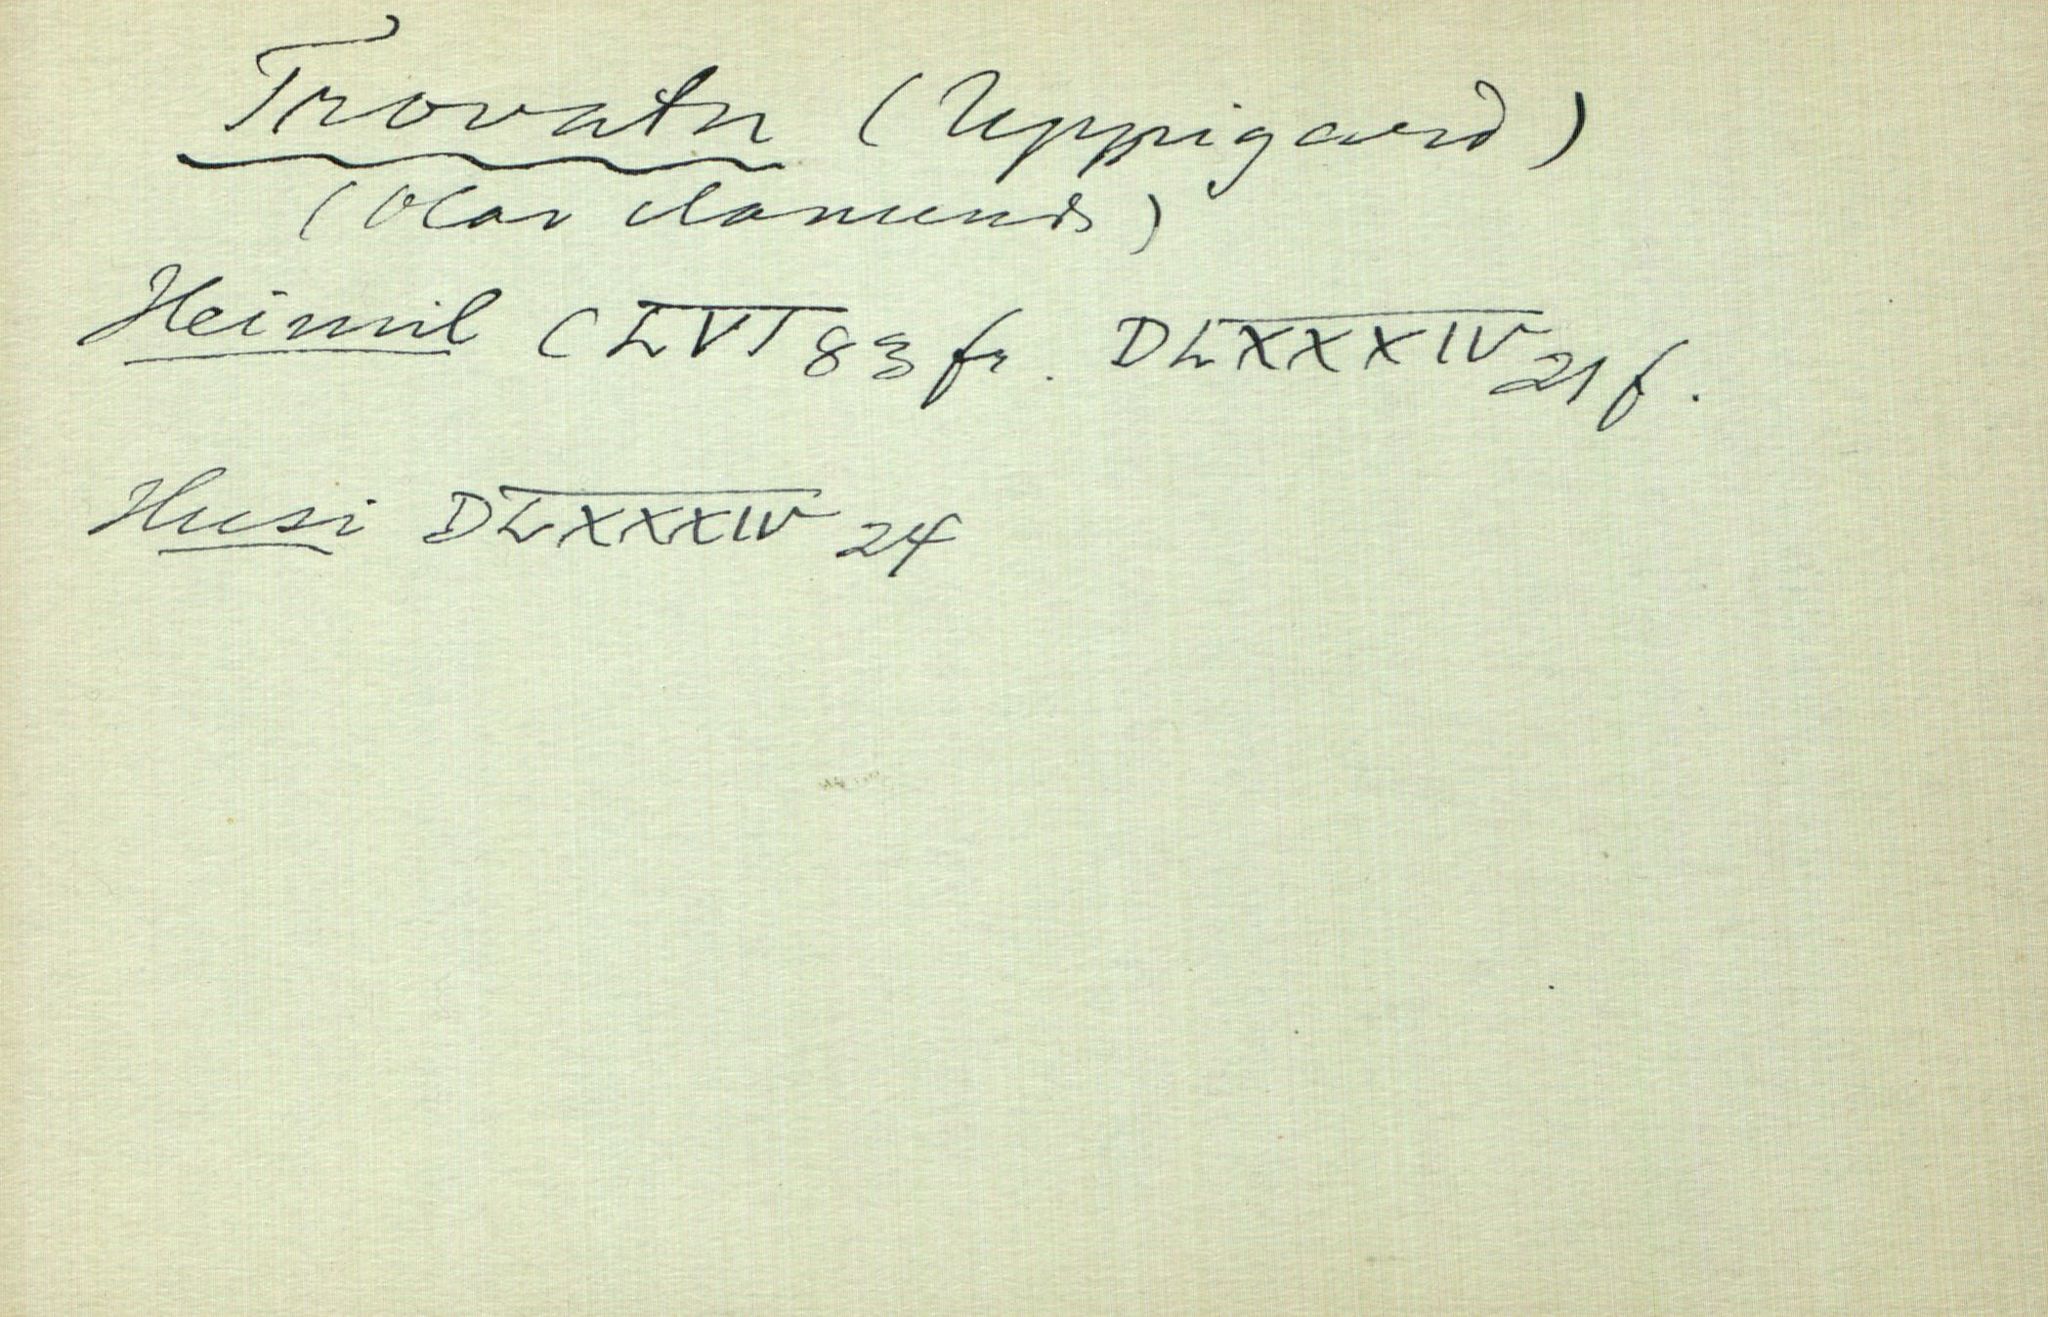 Trovatn (Uppigard)
(Olav Aamunds)
Heimil CLVI 83 fr. DLXXXIV 21 f.
Husi DLXXXIV 24